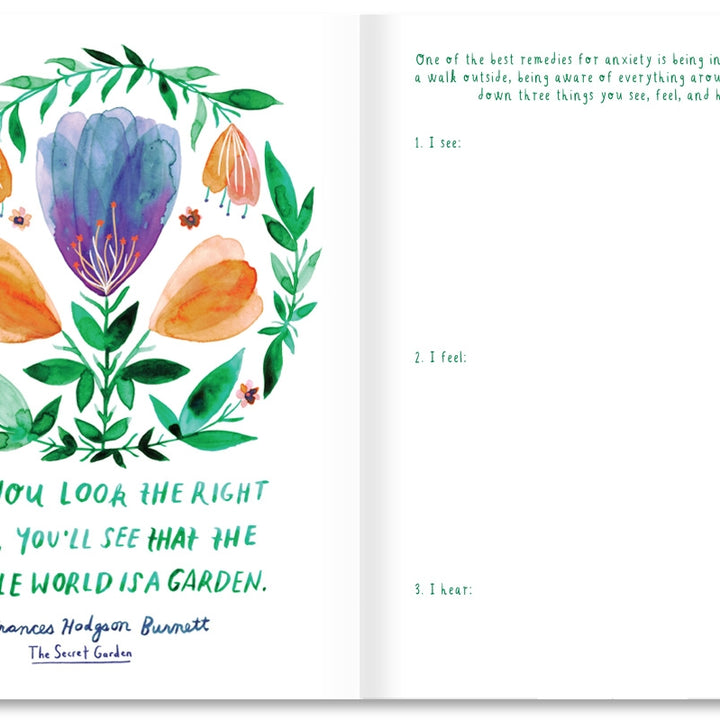 YOU LOOK THE RIGHT
YOU'LL SEE THAT THE
WORLD IS A GARDEN.
Hodgson Burnett
The Secret Garden
One of the best remedies for anxiety is being in
a walk outside, being aware of everything
down three things you see, feel, and
1. I see:
2. I feel:
3. I hear: